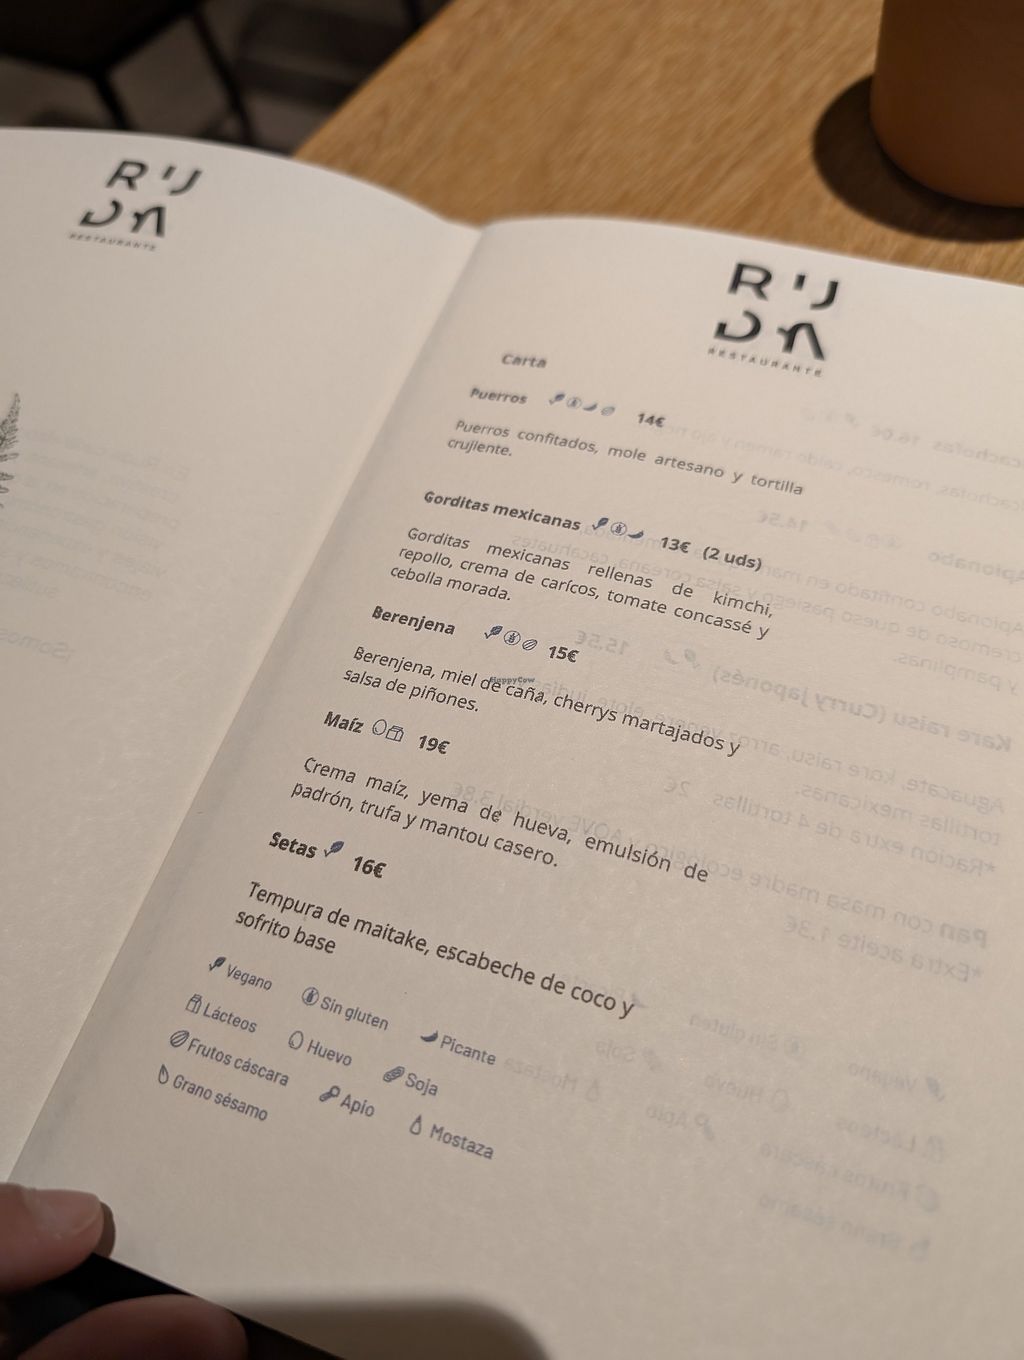 RUDA
RESTAURANTE
RUDA
RESTAURANTE
Carta
Puerros 14€
Puerros confitados, mole artesano y tortilla
crujiente.
Gorditas mexicanas 13€ (2 uds)
Gorditas mexicanas rellenas de kimchi,
repollo, crema de carícos, tomate concassé y
cebolla morada.
Berenjena 15€
Berenjena, miel de caña, cherrys martajados y
salsa de piñones.
HappyCow
Maíz 19€
Crema maíz, yema de hueva, emulsión de
padrón, trufa y mantou casero.
Setas 16€
Tempura de maitake, escabeche de coco y
sofrito base
Vegano Sin gluten Picante
Lácteos Huevo Soja
Frutos cáscara Apio Mostaza
Grano sésamo